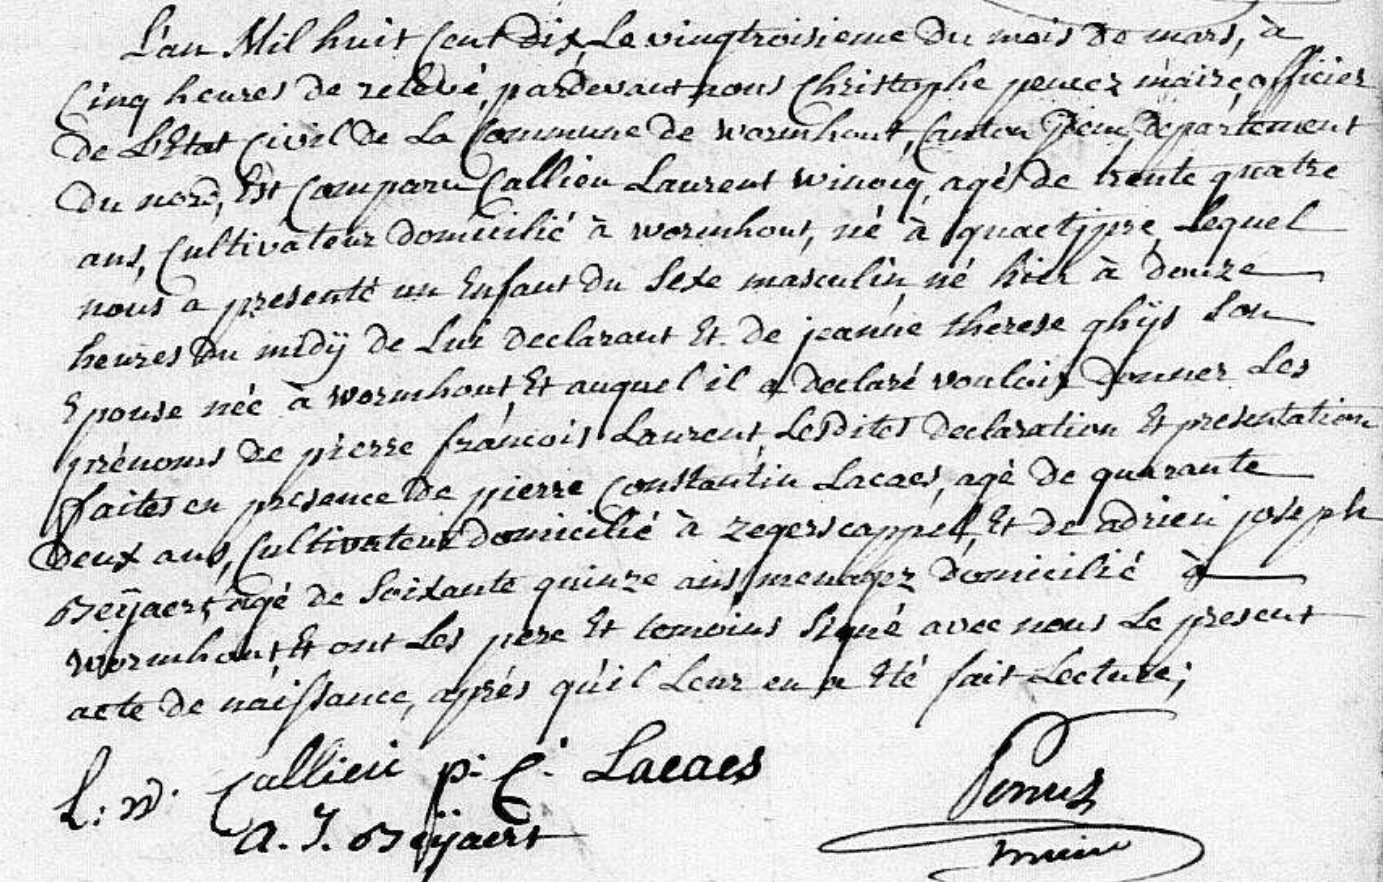 L'an Mil huit Cent dix, Le vingtroisieme Du mois De mars, à
Cinq heures de relevé, pardevant nous Christophe maire, officier
de L'Etat Civil de La Commune de wormhout, Canton Département
Du nord, Est Comparu Callieu Laurent winocq, agé de trente quatre
ans, Cultivateur domicilié à wormhout, né à quaetijpre, Lequel
nous a presenté un Enfant du Sexe masculin né hier à douze
heures du midÿ de Lui declarant Et de jeanne therese ghijs Son
Epouse née à wormhout, Et auquel il a declaré vouloir donner Les
prénoms de pierre françois Laurent, Lesdites declaration Et presentation
faites en presence de pierre Constantin Lacaes, agé de quarante
deux ans, Cultivateur domicilié à zegerscappel, Et de adrien joseph
Beÿaert, agé de Soixante quinze ans, menager domicilié à
wormhout Et ont Les pere Et temoins Signé avec nous Le present
acte de naissance, aprés qu'il Leur en a Eté fait Lecture;
L: W. Callieu p: C: Lacaes
A. J. Beÿaert
maire